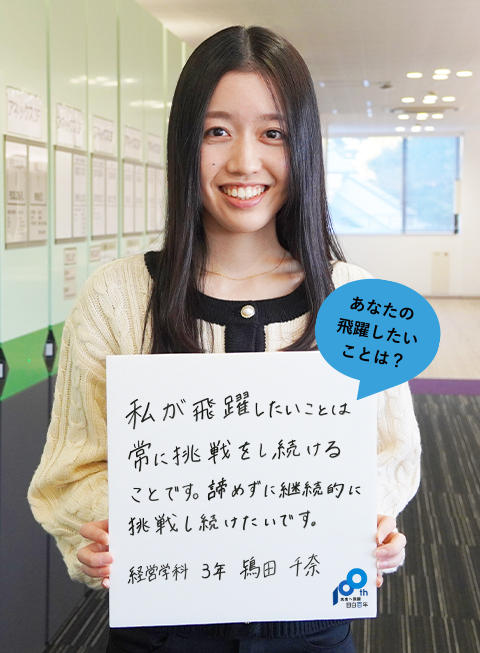 あなたの
飛躍したい
ことは？
私が飛躍したいことは
常に挑戦をし続ける
ことです。諦めずに継続的に
挑戦し続けたいです。
経営学科 3年 鴇田 千奈
100th
目白百年